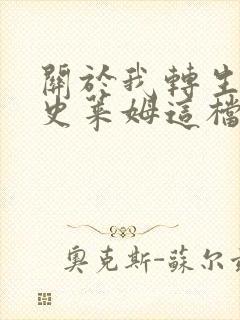 關於我轉生
史萊姆這檔
奧克斯-蘇尔